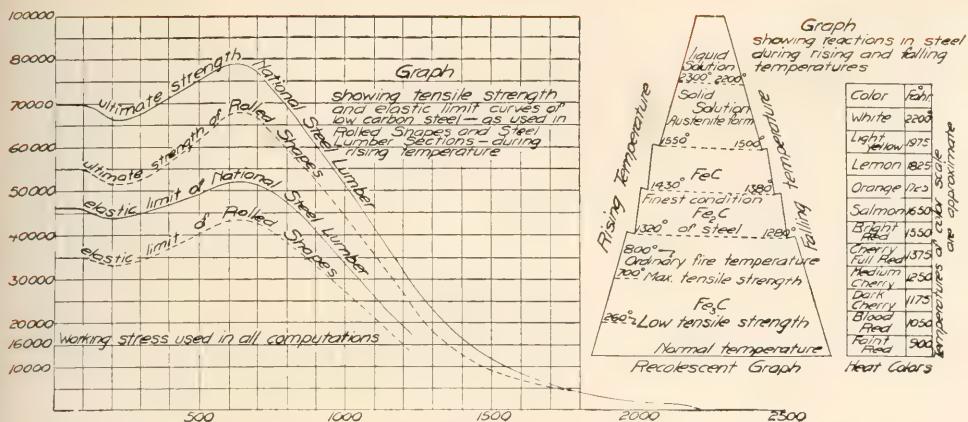 100000
90000
80000
70000
60000
50000
40000
30000
20000
16000
10000
500
1000
1500
2000
2500
ultimate strength National Steel Lumber
ultimate strength of Rolled Shapes
elastic limit of National Steel Lumber
elastic limit of Rolled Shapes
Working stress used in all computations
Graph
showing tensile strength
and elastic limit curves of
low carbon steel — as used in
Rolled Shapes and Steel
Lumber Sections — during
rising temperature
Rising Temperature
Falling temperature
liquid
Solution
2300° 2200°
Solid
Solution
Austenite form
1550° 1500°
FeC
1430° 1380°
Finest condition
Fe₂C
1320 of steel 1280°
800°
Ordinary fire temperature
700° Max. tensile strength
Fe₃C
260° Low tensile strength
Normal temperature
Recolescent Graph
Graph
showing reactions in steel
during rising and falling
temperatures
Color Fahr
White 2200°
Light yellow 1975
Lemon 1825
Orange
Salmon 1650
Bright Red 1550
Cherry Full Red 1375
Medium Cherry 1250
Dark Cherry 1175
Blood Red 1050
Faint Red 900
Heat Colors
Temperatures of color scale
are approximate